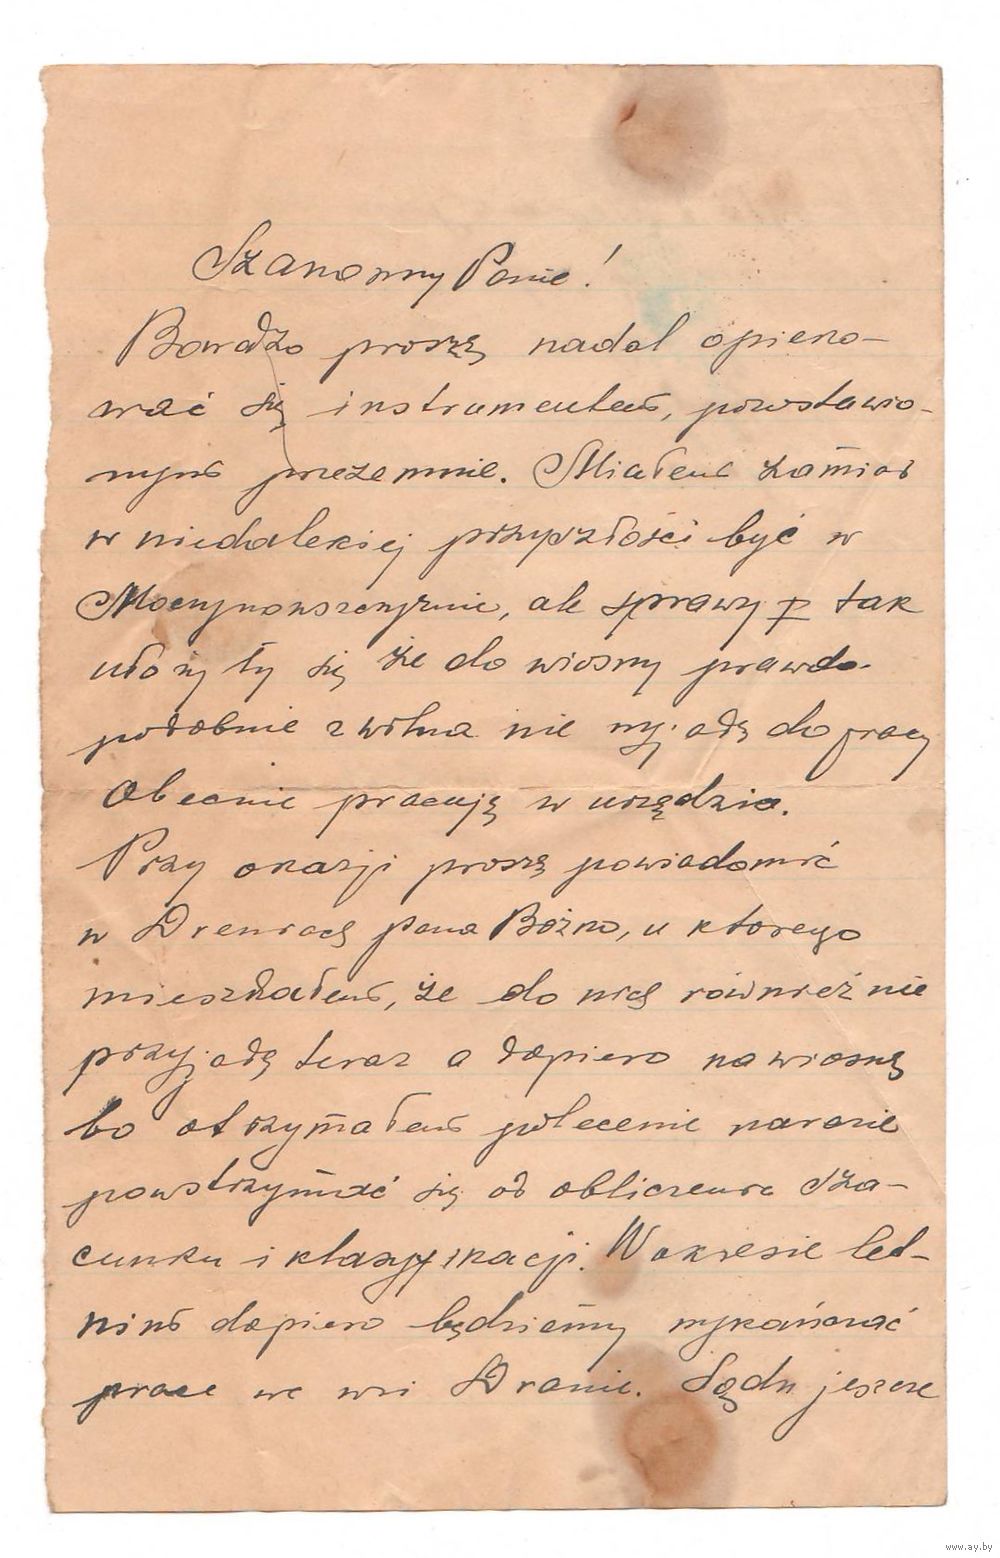 Szanowny Panie!
Bardzo proszę nadal opieko-
wać się instrumentem, pozostawio-
nym przezemnie. Miałem zamiar
w niedalekiej przyszłości być w
ale sprawy tak
ułożyły się że do wiosny prawdo-
podobnie z Wilna nie wyjadę do pracy
Obecnie pracuję w urzędzie.
Przy okazji proszę powiadomić
w pana u ktorego
mieszkałem, że do nich również nie
przyjadę teraz a dopiero na wiosnę
bo otrzymałem polecenie narazie
powstrzymać się od obliczenia sza-
cunku i klasyfikacji. W okresie let-
nim dopiero będziemy wykańczać
prace we wsi Sądu jeszcze
www.ay.by